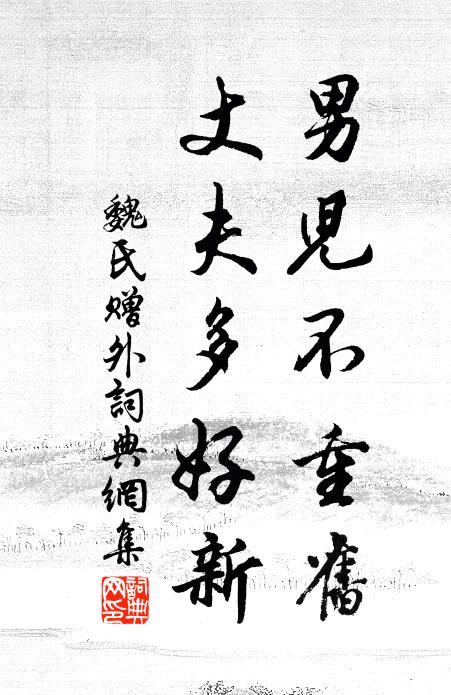 男兒不重舊
丈夫多好新
魏氏贈外詞典網集
詞典